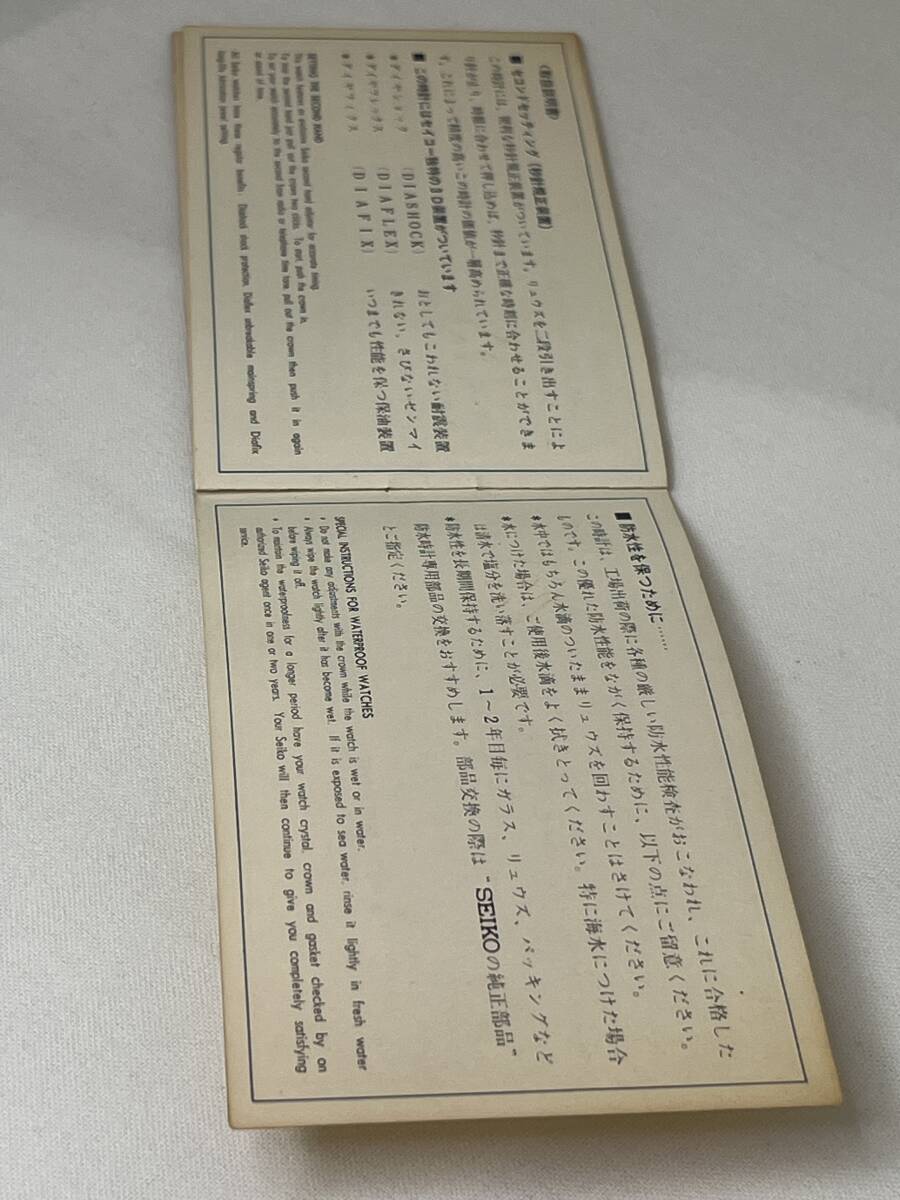 (取扱説明書)
■ セコンドセッティング (秒針規正装置)
この時計には、便利な秒針規正装置がついています。リュウズを二段引き出すことによ
り針が止り、時報に合わせて押し込めば、秒針まで正確な時刻に合わせることができま
す。これによって精度の高いこの時計の価値が一層高められています。
■ この時計にはセイコー独特の3D装置がついています
*ダイヤショック (DIASHOCK) おとしてもこわれない耐震装置
*ダイヤフレックス (DIAFLEX) きれない、さびないゼンマイ
*ダイヤフィクス (DIAFIX) いつまでも性能を保つ保油装置
SETTING THE SECOND HAND
This watch features an exclusive Seiko second hand adjuster for accurate timing.
To stop the second hand just pull out the crown two clicks. To start, push the crown in.
To set your watch accurately to the second hear radio or telephone time tone, pull out the crown then push it in again
at sound of tone.
All Seiko watches have these regular benefits: Diashock shock protection, Diaflex unbreakable mainspring and Diafix
long-life lubrication jewel setting.
■防水性を保つために……
この時計は、工場出荷の際に各種の厳しい防水性能検査がおこなわれ、これに合格した
ものです。この優れた防水性能をながく保持するために、以下の点にご留意ください。
*水中ではもちろん水滴のついたままリュウズを回わすことはさけてください。
*水につけた場合は、ご使用後水滴をよく拭きとってください。特に海水につけた場合
は清水で塩分を洗い落すことが必要です。
*防水性を長期間保持するために、1〜2年目毎にガラス、リュウズ、パッキングなど
防水時計専用部品の交換をおすすめします。部品交換の際は"SEIKOの純正部品"
とご指定ください。
SPECIAL INSTRUCTIONS FOR WATERPROOF WATCHES
* Do not make any adjustments with the crown while the watch is wet or in water.
* Always wipe the watch lightly after it has become wet. If it is exposed to sea water, rinse it lightly in fresh water
before wiping it off.
* To maintain the waterproofness for a longer period have your watch crystal, crown and gasket checked by an
authorized Seiko agent once in one or two years. Your Seiko will then continue to give you completely satisfying
service.